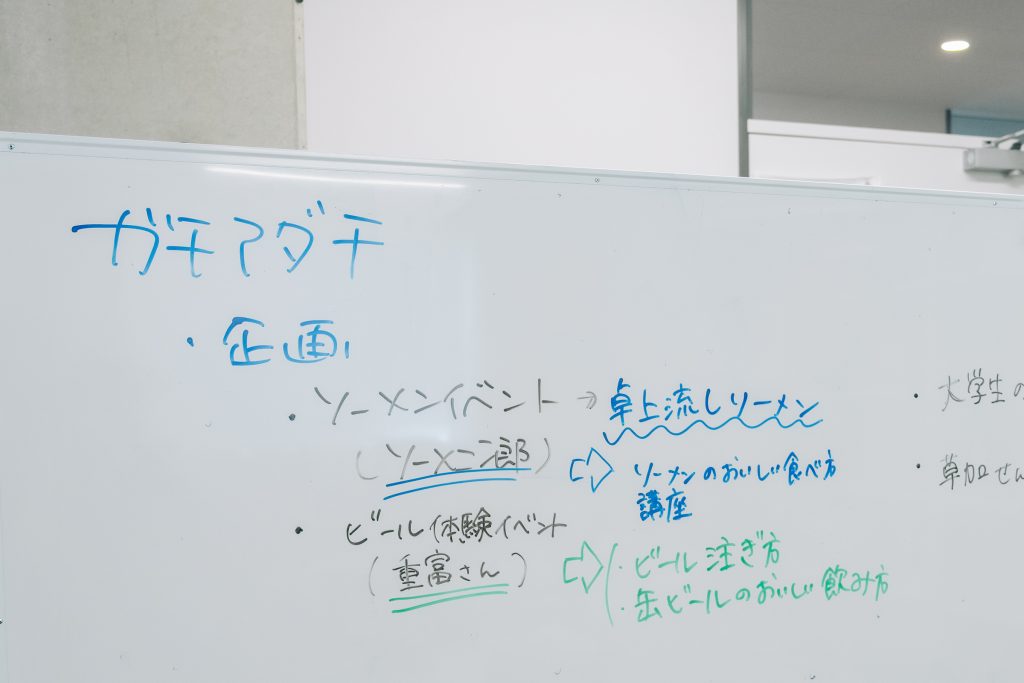 ガチアダチ
・企画
・ソーメンイベント → 卓上流しソーメン
(ソーメン二郎) ⇨ ソーメンのおいしい食べ方
講座
・ビール体験イベント
(重富さん) ⇨ ・ビール注ぎ方
・缶ビールのおいしい飲み方
・大学生の
・草加せん